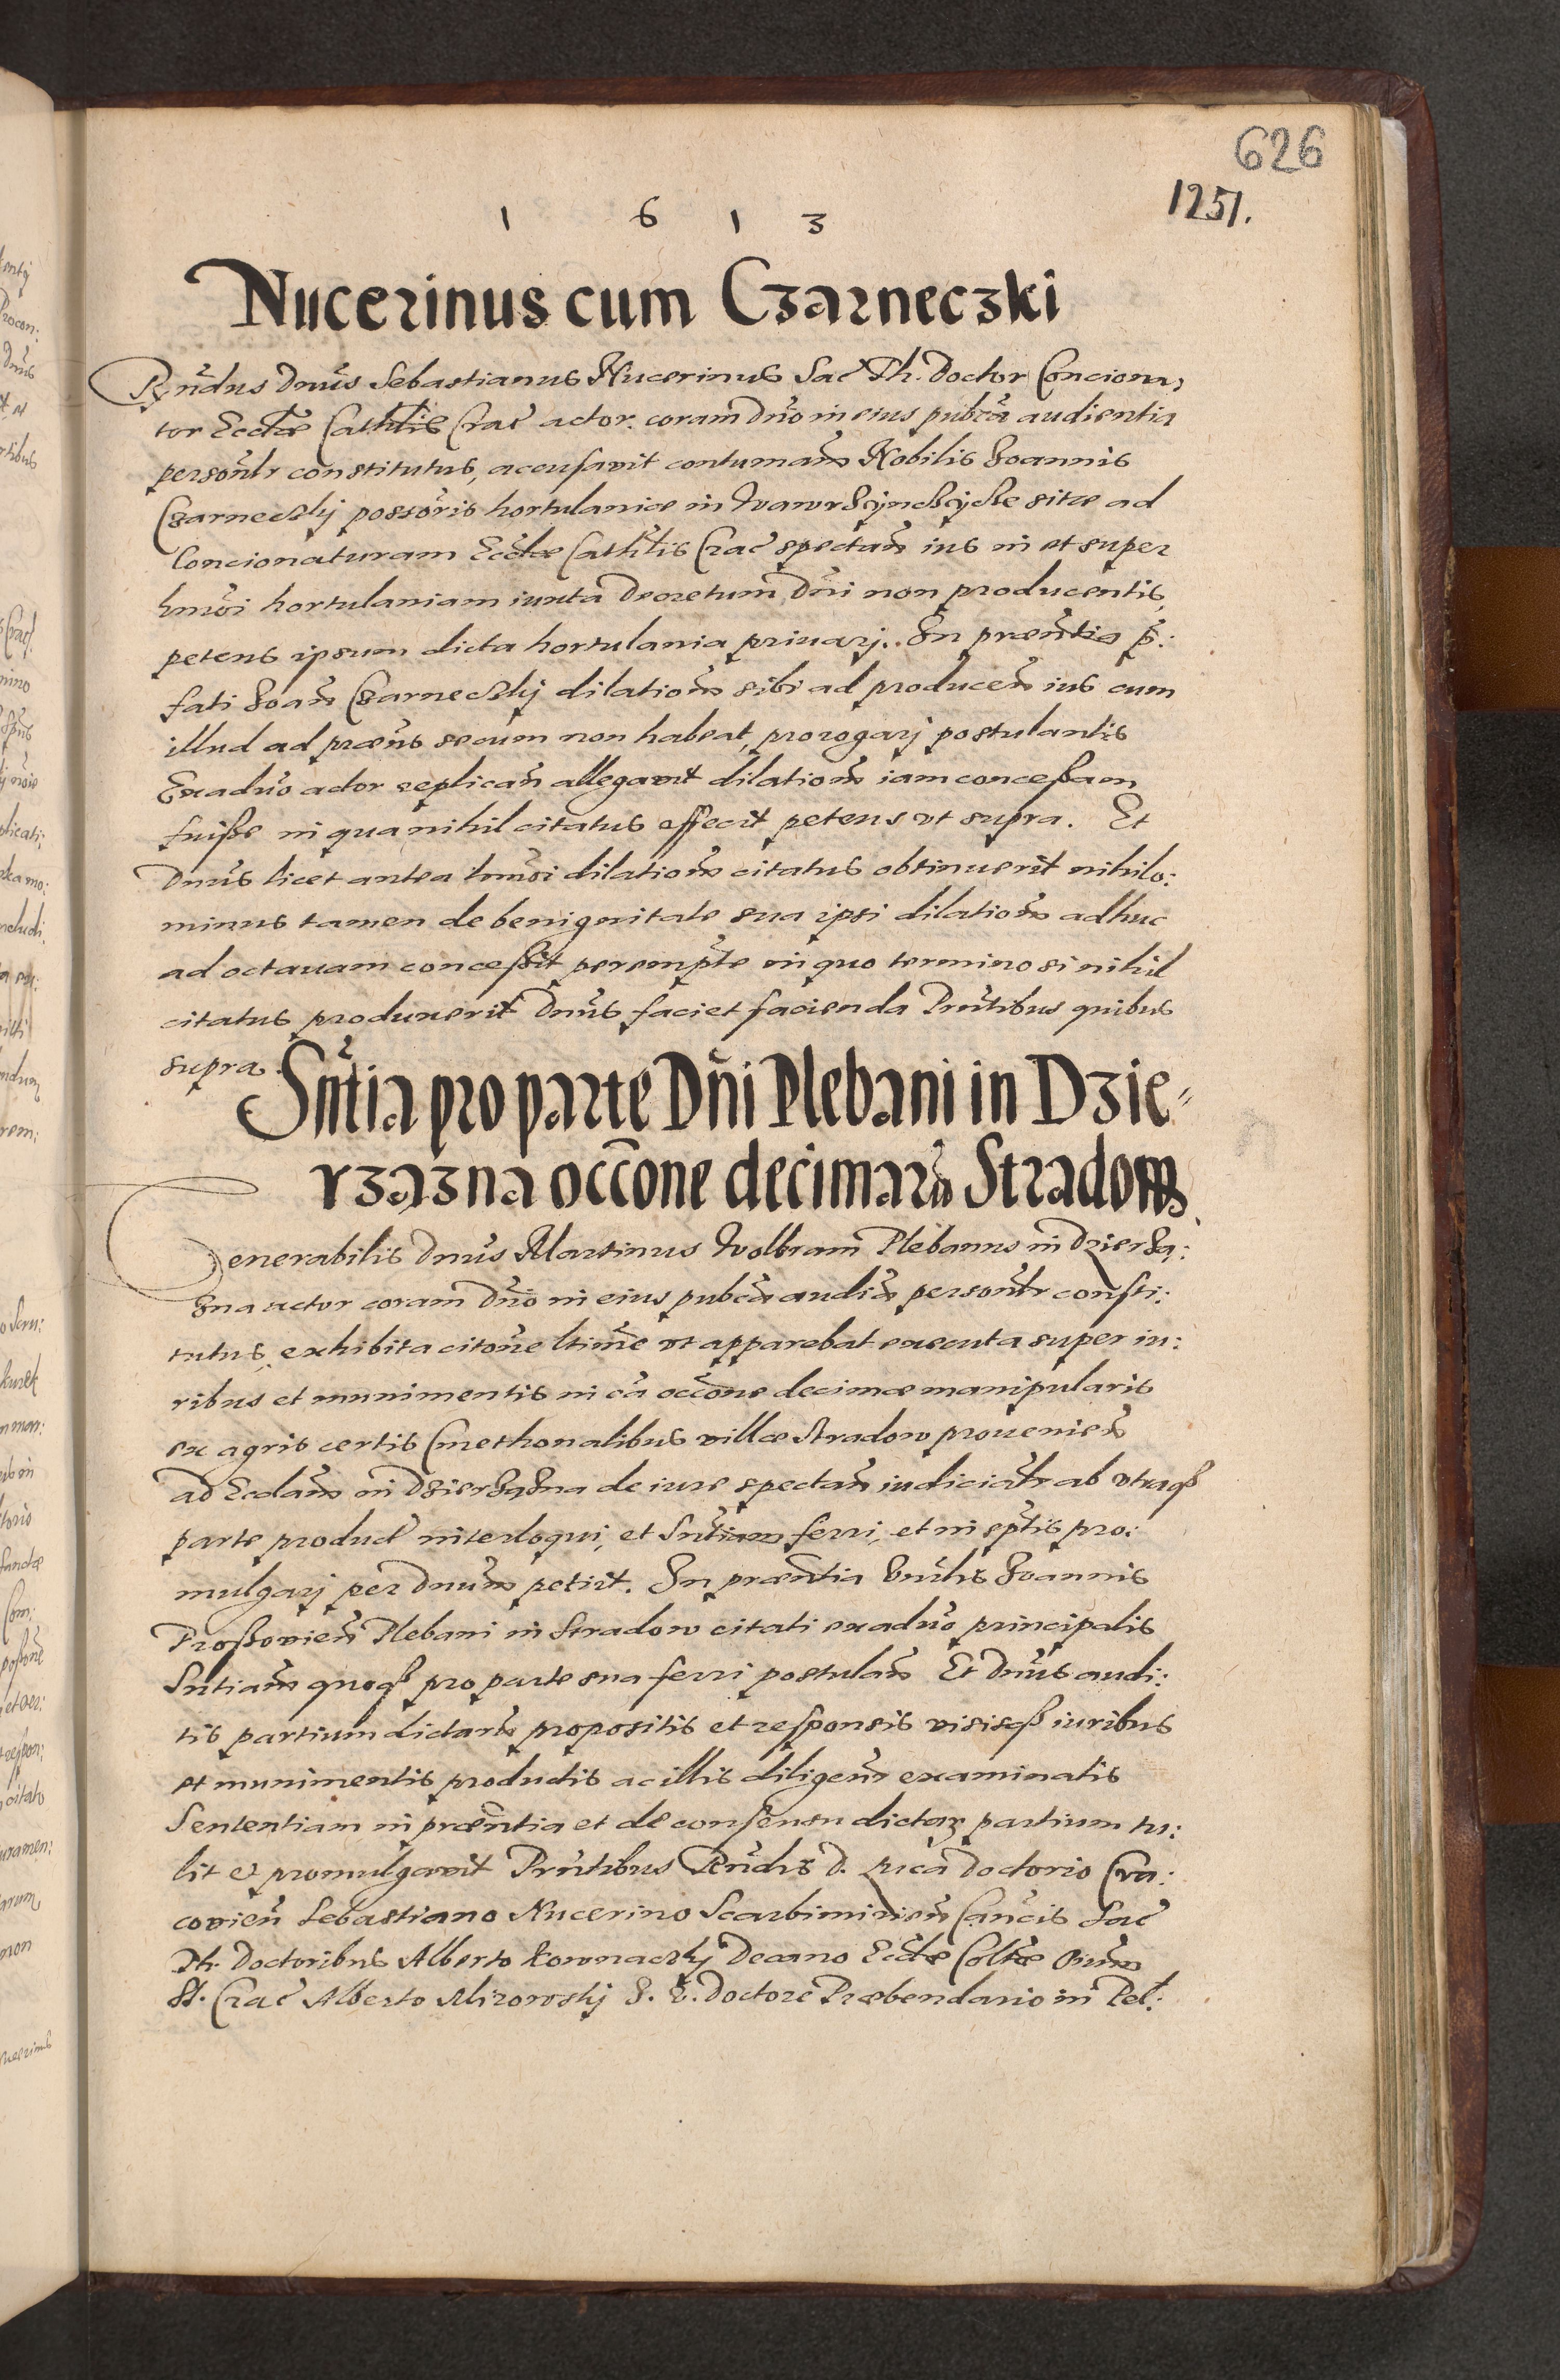 626
1251.
1 6 1 3
Nucerinus cum Czarneczki
Rndus Dnus Sebastianus Nucerinus Sac Th. Doctor Conciona
tor Eccliæ Cathlis Crac actor. coram Dno in eius publca audientia
personlr constitutus, accusavit contumam Nobilis Joannis
Czarneczkij possoris hortulaniæ in sitæ ad
Concionaturam Eccliæ Cathlis Crac spectan ius in et super
hmoi hortulaniam iuxta Decretum Dni non producentis,
petens ipsum dicta hortulania privarj. In præntia p:
fati Joan Czarneczkij dilationem sibi ad producen ius cum
illud ad præns secum non habeat, prorogarj postulantis
Exaduo actor replican allegavit dilationem iam conceßam
fuiße in qua nihil citatus effecit petens ut supra. Et
Dnus licet antea hmoi dilationem citatus obtinuerit nihilo:
minus tamen de benignitate sua ipsi dilationem adhuc
ad octavam conceßit perempte in quo termino si nihil
citatus produxerit Dnus faciet facienda Pntibus quibus
supra.
Sntia pro parte Dni Plebani in Dzie-
rzazna occone decimaru Stradow
Venerabilis Dnus Martinus Wolbram Plebanus in Dzierza:
zna actor coram Dno in eius pubca audia personlr consti:
tutus, exhibita citone ltime ut apparebat executa super iu:
ribus et munimentis in ca occone decimæ manipularis
ex agris certis Cmethonalibus villæ Stradow provenien
ad Ecclam in Dzierzazna de iure spectan iudicialr ab utraq
parte produc interloqui, et Sntiam ferri, et in sptis pro:
mulgarj per Dnum petiit. In præntia Vnrlis Joannis
Proßovien Plebani in Stradow citati exaduo principalis
Sntiam quoq pro parte sua ferri postulan Et Dnus audi:
tis partium dictaru propositis et responsis visisq iuribus
et munimentis productis ac illis diligenr examinatis
Sententiam in præntia et de consensu dictarz partium tu:
lit et promulgavit Pntibus Rndis D. Luca Doctorio Cra:
covien Sebastiano Nucerino Scarbimirien Cancis Sac
Th. Doctoribus Alberto Kownaczkj Decano Eccliæ Coltæ Omnium
St. Crac Alberto Mirowskj J. V. Doctore Præbendario in Pel: